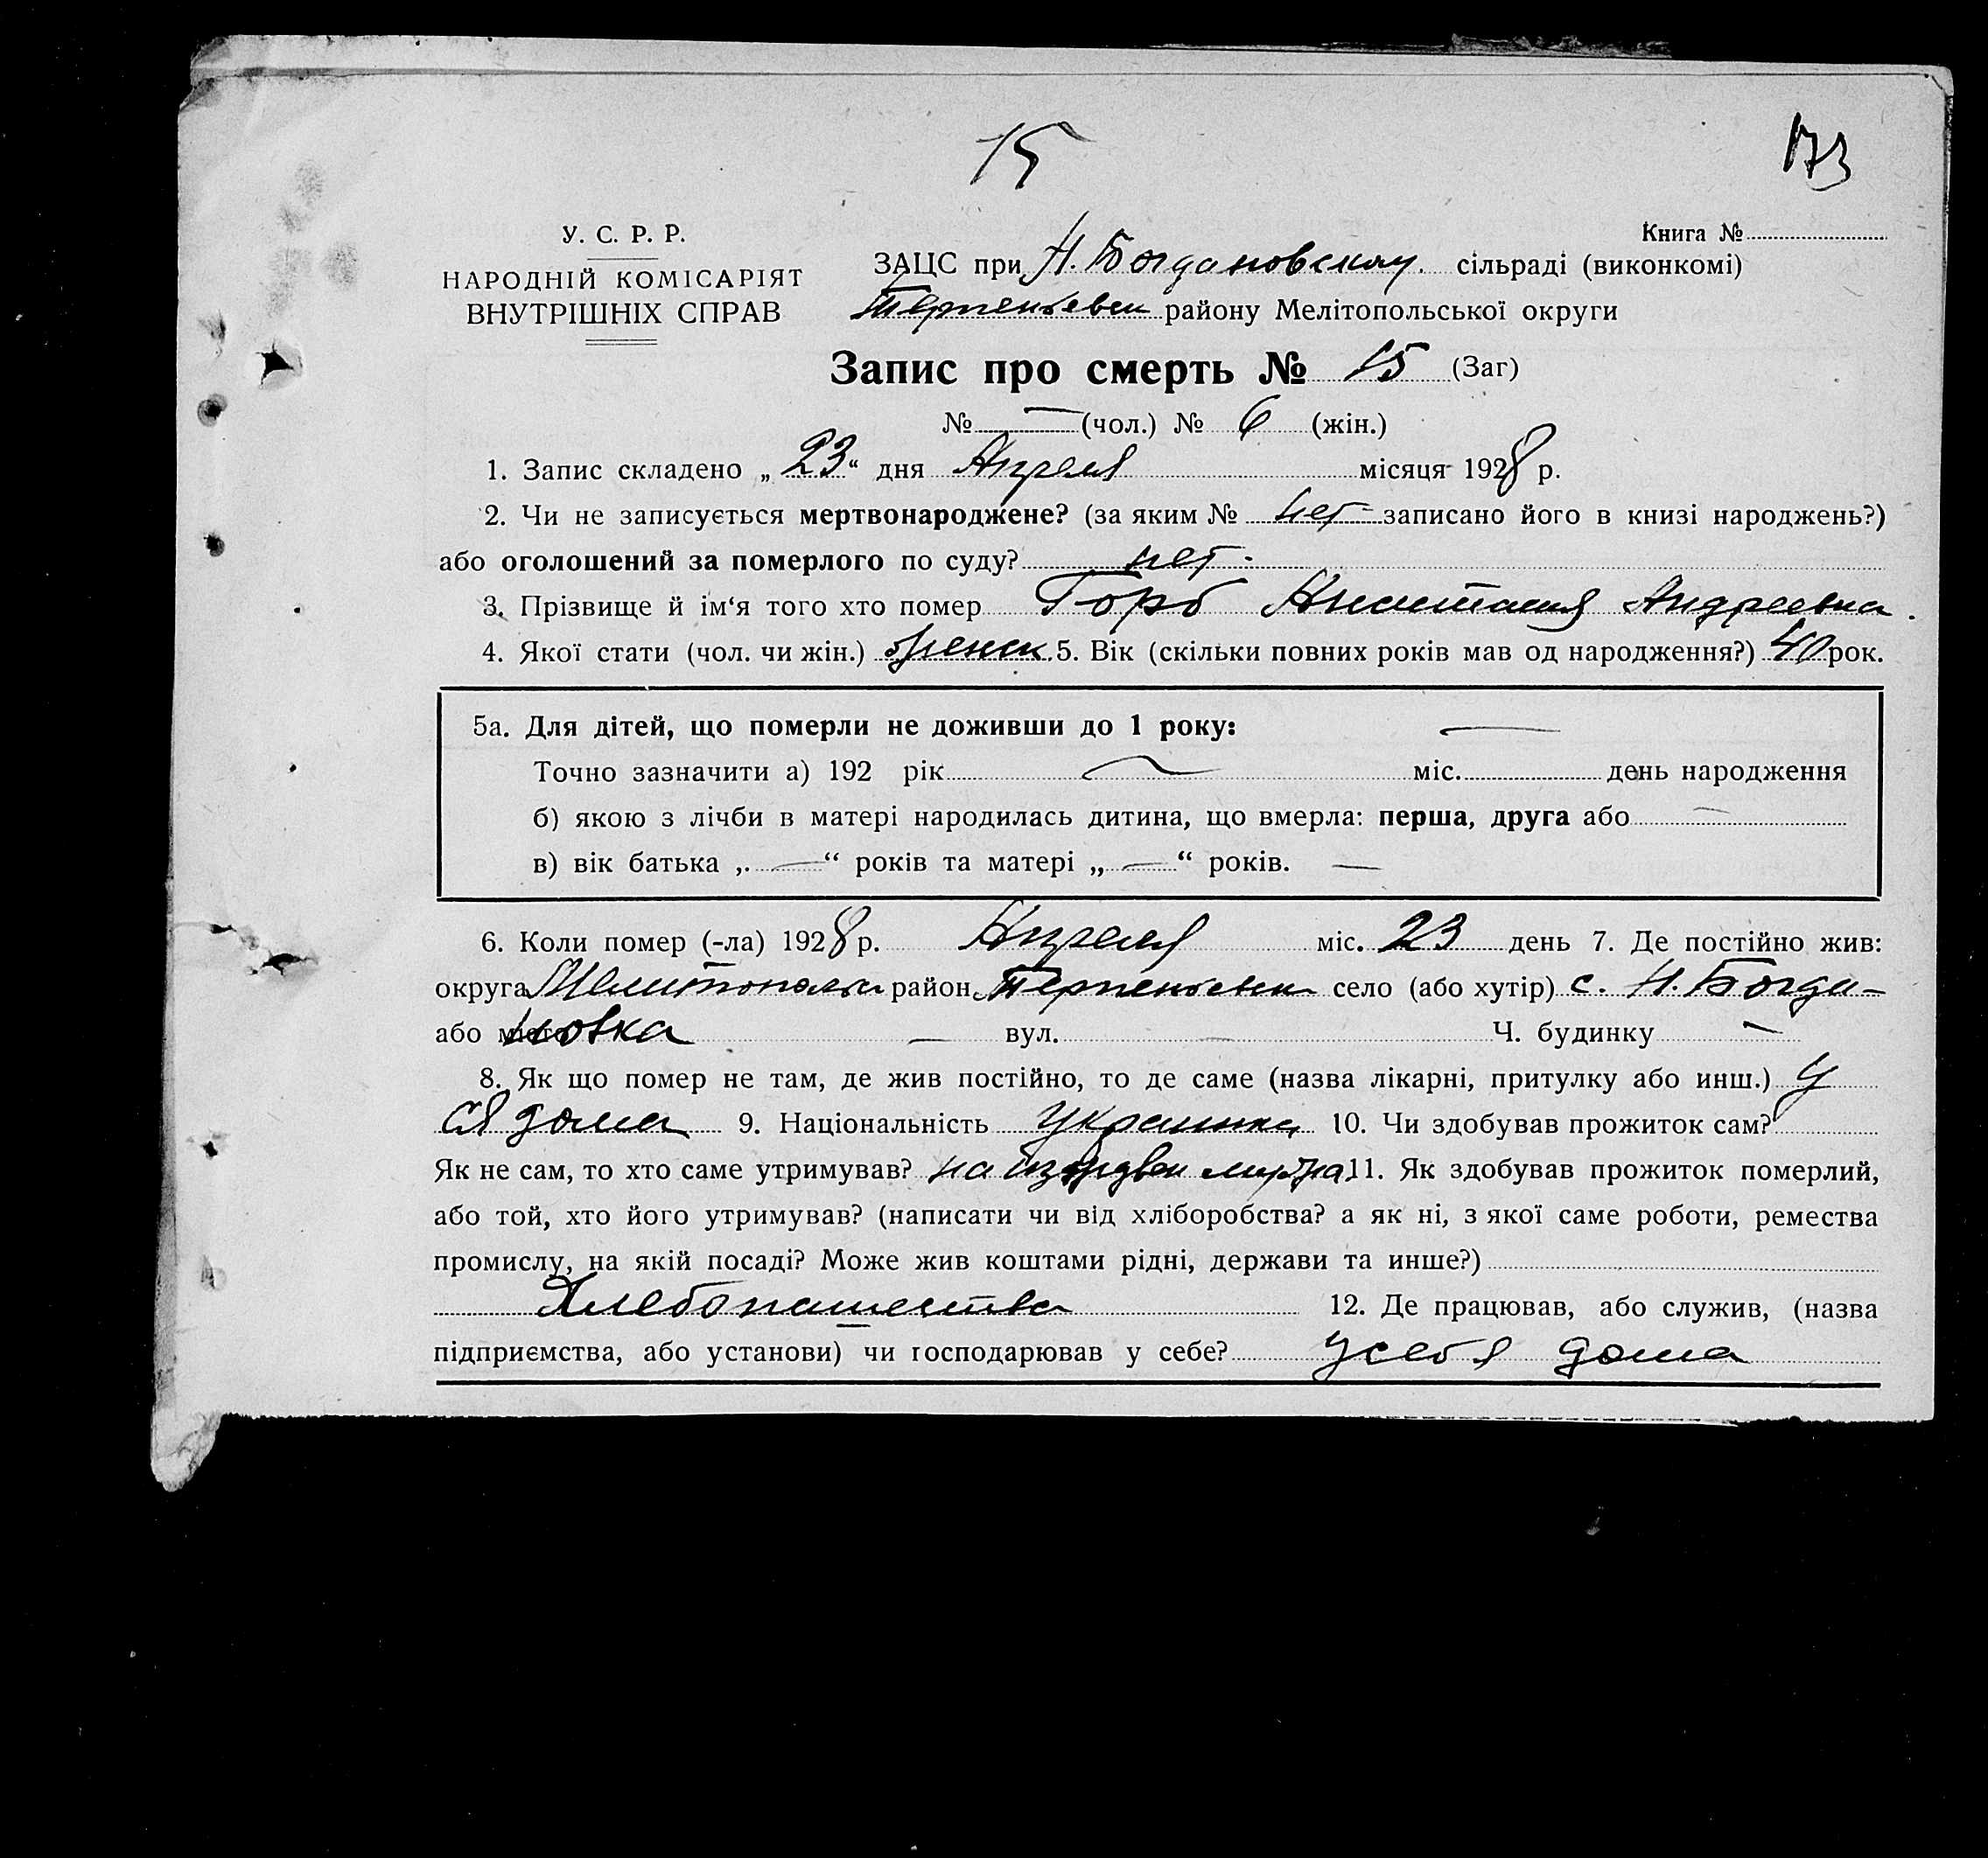 15
173
У. С. Р. Р.
НАРОДНІЙ КОМІСАРІЯТ
ВНУТРІШНІХ СПРАВ
Книга №
ЗАЦС при Н. Богдановском сільраді (виконкомі)
Терпеньевск районy Мелітопольської округи
Запис про смерть № 15 (Заг)
№ — (чол.) № 6 (жін.)
1. Запис складено „ 23 “ дня Апреля місяця 1928 р.
2. Чи не записується мертвонароджене? (за яким № нет записано його в книзі народжень?)
або оголошений за померлого по суду? нет.
3. Прізвище й ім‘я того хто помер Горб Анастасия Андреевна.
4. Якої стати (чол. чи жін.) женск. 5. Вік (скільки повних років мав од народження?) 40 рок.
5а. Для дітей, що померли не доживши до 1 року: —
Точно зазначити а) 192 рік — міс. день народження
б) якою з лічби в матері народилась дитина, що вмерла: перша, друга або —
в) вік батька „ — “ років та матері „ — “ років. —
6. Коли помер (-ла) 1928 р. Апреля міс. 23 день 7. Де постійно жив:
округа Мелитопольск район Терпеньевск село (або хутір) с. Н. Богда-
або місто новка — вул. — Ч. будинку —
8. Як що помер не там, де жив постійно, то де саме (назва лікарні, притулку або инш.) у
ся дома 9. Національність украинка 10. Чи здобував прожиток сам?
Як не сам, то хто саме утримував? на мужа 11. Як здобував прожиток померлий,
або той, хто його утримував? (написати чи від хліборобства? а як ні, з якої саме роботи, ремества
промислу, на якій посаді? Може жив коштами рідні, держави та инше?)
Хлебопашества 12. Де працював, або служив, (назва
підприємства, або установи) чи господарював у себе? у себя дома